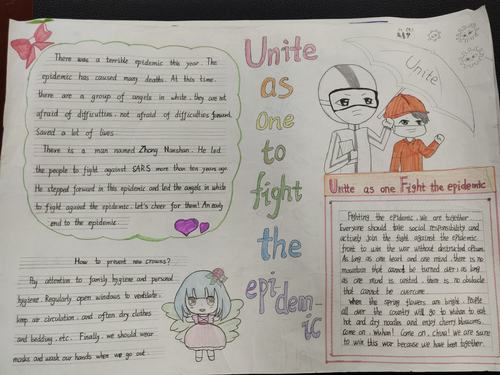 There was a terrible epidemic this year. The
epidemic has caused many deaths. At this time.
there are a group of angels in white. they are not
afraid of difficulties. not afraid of difficulties forward.
Saved a lot of lives
There is a man named Zhong Nanshan. He led
the people to fight against SARS more than ten years ago.
He stepped forward in this epidemic and led the angels in white
to fight against the epidemic. let's cheer for them! An early
end to the epidemic.
How to prevent new crowns?
Pay attention to family hygiene and personal
hygiene. Regularly open windows to ventilate.
keep air circulation. and often dry clothes
and bedding. etc. Finally. we should wear
masks and wash our hands when we go out.
Unite
as
one
to
fight
the
epidem-
ic
Unite
Unitte as one Fight the epidemic
Fighting the epidemic. We are together.
Everyone should take social responsibility and
actively join the fight against the epidemic
front to win the war without destructive efforts.
As long as one heart and one mind. there is no
mountain that cannot be turned over; as long
as one mind is united. there is no obstacle
that cannot be overcome.
When the spring flowers are bright. People
all over the country will go to wuhan to eat
hot and dry noodles and enjoy cherry blossoms.
come on. Wuhan! Come on. China! We are sure
to win this war because we have been together.